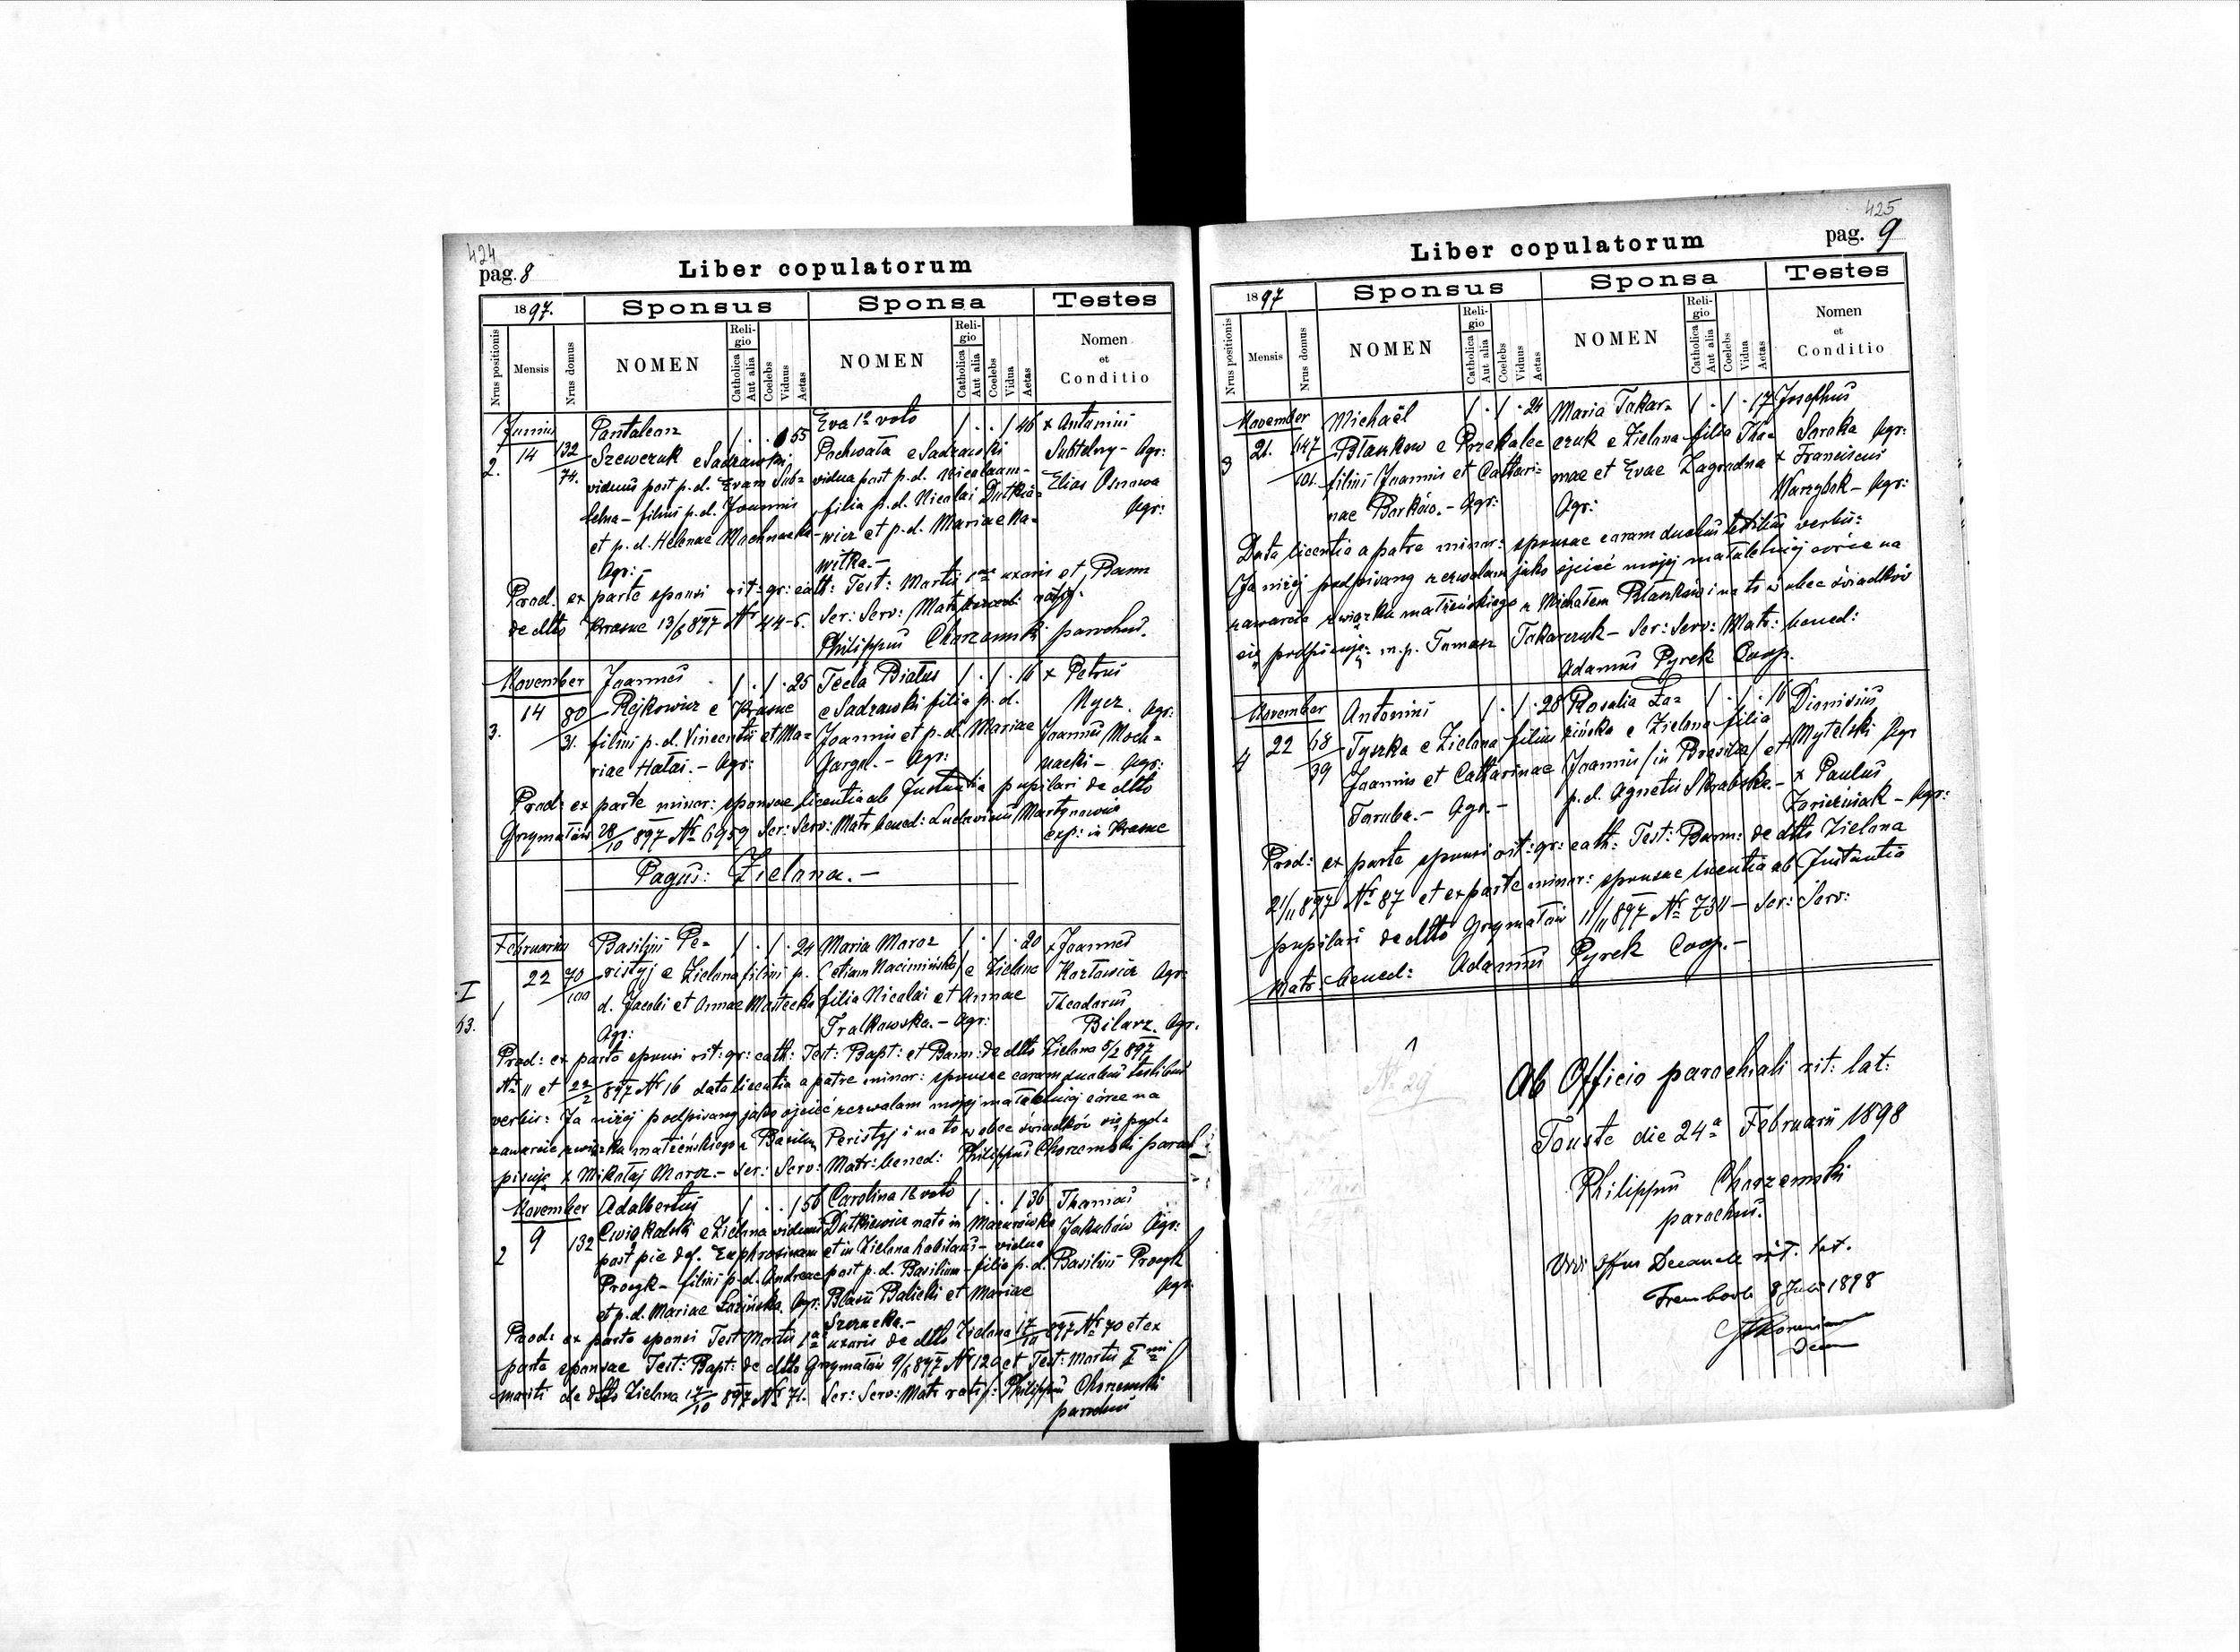 424
pag. 8
Liber copulatorum
1897.
Sponsus
Sponsa
Testes
Nrus positionis
Mensis
Nrus domus
NOMEN
Religio
Catholica
Aut alia
Coelebs
Viduus
Aetas
NOMEN
Religio
Catholica
Aut alia
Coelebs
Vidua
Aetas
Nomen
et
Conditio
Junius
2. 14 132/74.
Pantaleon 1 . . 1 55
Szewczuk e Sadzawki
viduus post p.d. Evam Sub=
telna – filius p.d. Joannis
et p.d. Helenae Mochnacka –
Agr: –
Eva 1º voto 1 . . 1 46
Pochwała e Sadzawki
vidua post p.d. Nicolaum –
filia p.d. Nicolai Dutkie=
wicz et p.d. Mariae Na=
witka. –
x Antonius
Subtelny – Agr:
Elias Osnowa
Agr:
Prod: ex parte sponsi rit: gr: cath: Test: Mortis 1mae uxoris et Bann
de dtto Krasne 13/6 897 Nr 44-5. Ser: Serv: Matr. ratif.
Philippus Chorzemski parochus.
November
3. 14 80/31.
Joannes 1 . 1 . 25
Rejkowicz e Krasne
filius p.d. Vincentii et Ma=
riae Hałas. – Agr:
Tecla Białus 1 . 1 . 16
e Sadzawki filia p.d.
Joannis et p.d. Mariae
Gargol. – Agr:
x Petrus
Mycz. Agr:
Joannes Moch=
nacki – Agr:
Prod: ex parte minor: sponsae licentia ab Instantia pupilari de dtto
Grzymałów 28/10 897 Nr 6959 Ser: Serv: Matr. bened: Ludovicus Martynowicz
exp: in Krasne
Pagus: Zielona. –
Februarius
I
1 22 70/100
63.
Basilius Pe= 1 . 1 . 24
ristyj e Zielona filius p.
d. Jacobi et Annae Mastecka
Agr:
Maria Moroz 1 . 1 . 20
(etiam Nacimińska) e Zielona
filia Nicolai et Annae
Tralkowska. – Agr:
x Joannes
Kozłowicz Agr:
Theodorus
Bilarz. Agr.
Prod: ex parte sponsi rit: gr: cath: Test: Bapt: et Bann: de dtto Zielona 5/2 897
Nr 11 et 22/2 897 Nr 16 data licentia a patre minor: sponsae coram duobus testibus
verbis: Ja niżej podpisany jako ojciec zezwalam mojej małoletniej córce na
zawarcie związku małżeńskiego z Basilem Peristyj i na to wobec świadków się pod=
pisuję x Mikołaj Moroz. – Ser: Serv: Matr: bened: Philippus Chorzemski paroch
November
2 9 132
Adalbertus 1 . . 1 56
Cwiąkalski e Zielona viduus
post pie def. Euphrosinam
Procyk – filius p.d. Andreae
et p.d. Mariae Łozińska. Agr:
Carolina 1º voto 1 . . 1 36
Dutkiewicz nata in Mazurówka
et in Zielona habitans – vidua
post p.d. Basilium – filia p.d.
Blasii Balicki et Mariae
Thomas
Jakubów Agr:
Basilius Procyk
Agr:
Prod: ex parte sponsi Test: Mortis 1ae uxoris de dtto Zielona 17/10 897 Nr 70 et ex
parte sponsae Test: Bapt: de dtto Grzymałów 9/6 897 Nr 120 et Test: Mortis I mi
mariti de dtto Zielona 17/10 897 Nr 71. Ser: Serv: Matr ratif: Philippus Chorzemski
parochus
425
pag. 9
Liber copulatorum
1897
Sponsus
Sponsa
Testes
Nrus positionis
Mensis
Nrus domus
NOMEN
Religio
Catholica
Aut alia
Coelebs
Viduus
Aetas
NOMEN
Religio
Catholica
Aut alia
Coelebs
Vidua
Aetas
Nomen
et
Conditio
November
3 21. 147/101.
Michaël 1 . 1 . 24
Płaszków e Przekalec
filius Joannis et Cathari=
nae Borków. – Agr:
Maria Tokar= 1 . 1 . 17
czuk e Zielona filia Tho=
mae et Evae Zagrodna
Agr:
Josephus
Soroka Agr:
x Franciscus
Warzybok – Agr:
Data licentia a patre minor: sponsae coram duobus testibus verbis:
Ja niżej podpisany zezwalam jako ojciec mojej małoletniej córce na
zawarcie związku małżeńskiego z Michałem Płaszków i na to wobec świadków
się podpisuję: m.p. Tomasz Tokarczuk – Ser: Serv: Matr: bened:
Adamus Pyrek Coop.
November
4 22 68/39
Antonius 1 . 1 . 28
Tyszka e Zielona filius
Joannis et Catharinae
Taruba. – Agr. –
Rosalia Ło= 1 . 1 . 16
zińska e Zielona filia
Joannis (in Brasilia) et
p.d. Agnetis Skrabska. –
Dionisius
Mytelski Agr
x Paulus
Zorieźniak – Agr:
Prod: ex parte sponsi rit: gr: cath: Test: Bann: de dtto Zielona
21/11 897 Nr 87 et ex parte minor: sponsae licentia ab Instantia
pupilari de dtto Grzymałów 11/11 897 Nr 7311 – Ser: Serv:
Matr: bened: Adamus Pyrek Coop. –
Nr 29
Ab Officio parochiali rit: lat:
Touste die 24ª Februarii 1898
Philippus Chorzemski
parochus.
Decanale rit. lat.
Trembowla 8 Juli 1898